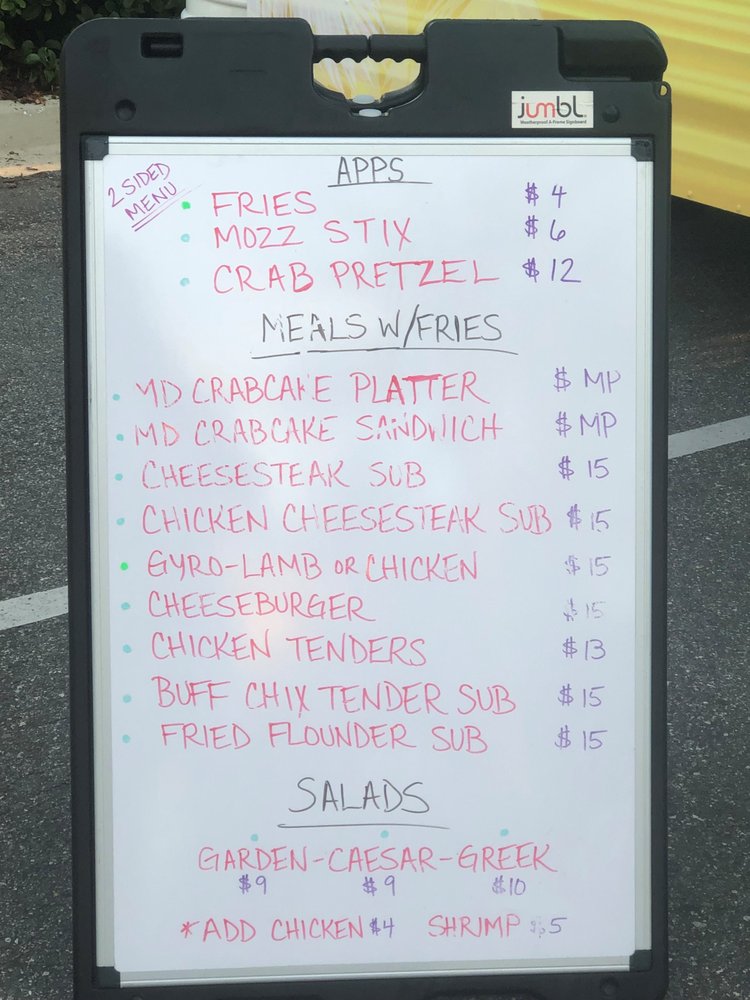 jumbl
Weatherproof A-Frame Signboard
2 SIDED
MENU
APPS
FRIES $4
MOZZ STIX $6
CRAB PRETZEL $12
MEALS W/FRIES
MD CRABCAKE PLATTER $ MP
MD CRABCAKE SANDWICH $ MP
CHEESESTEAK SUB $15
CHICKEN CHEESESTEAK SUB $15
GYRO-LAMB OR CHICKEN $15
CHEESEBURGER $15
CHICKEN TENDERS $13
BUFF CHIX TENDER SUB $15
FRIED FLOUNDER SUB $15
SALADS
GARDEN-CAESAR-GREEK
$9 $9 $10
*ADD CHICKEN $4 SHRIMP $5